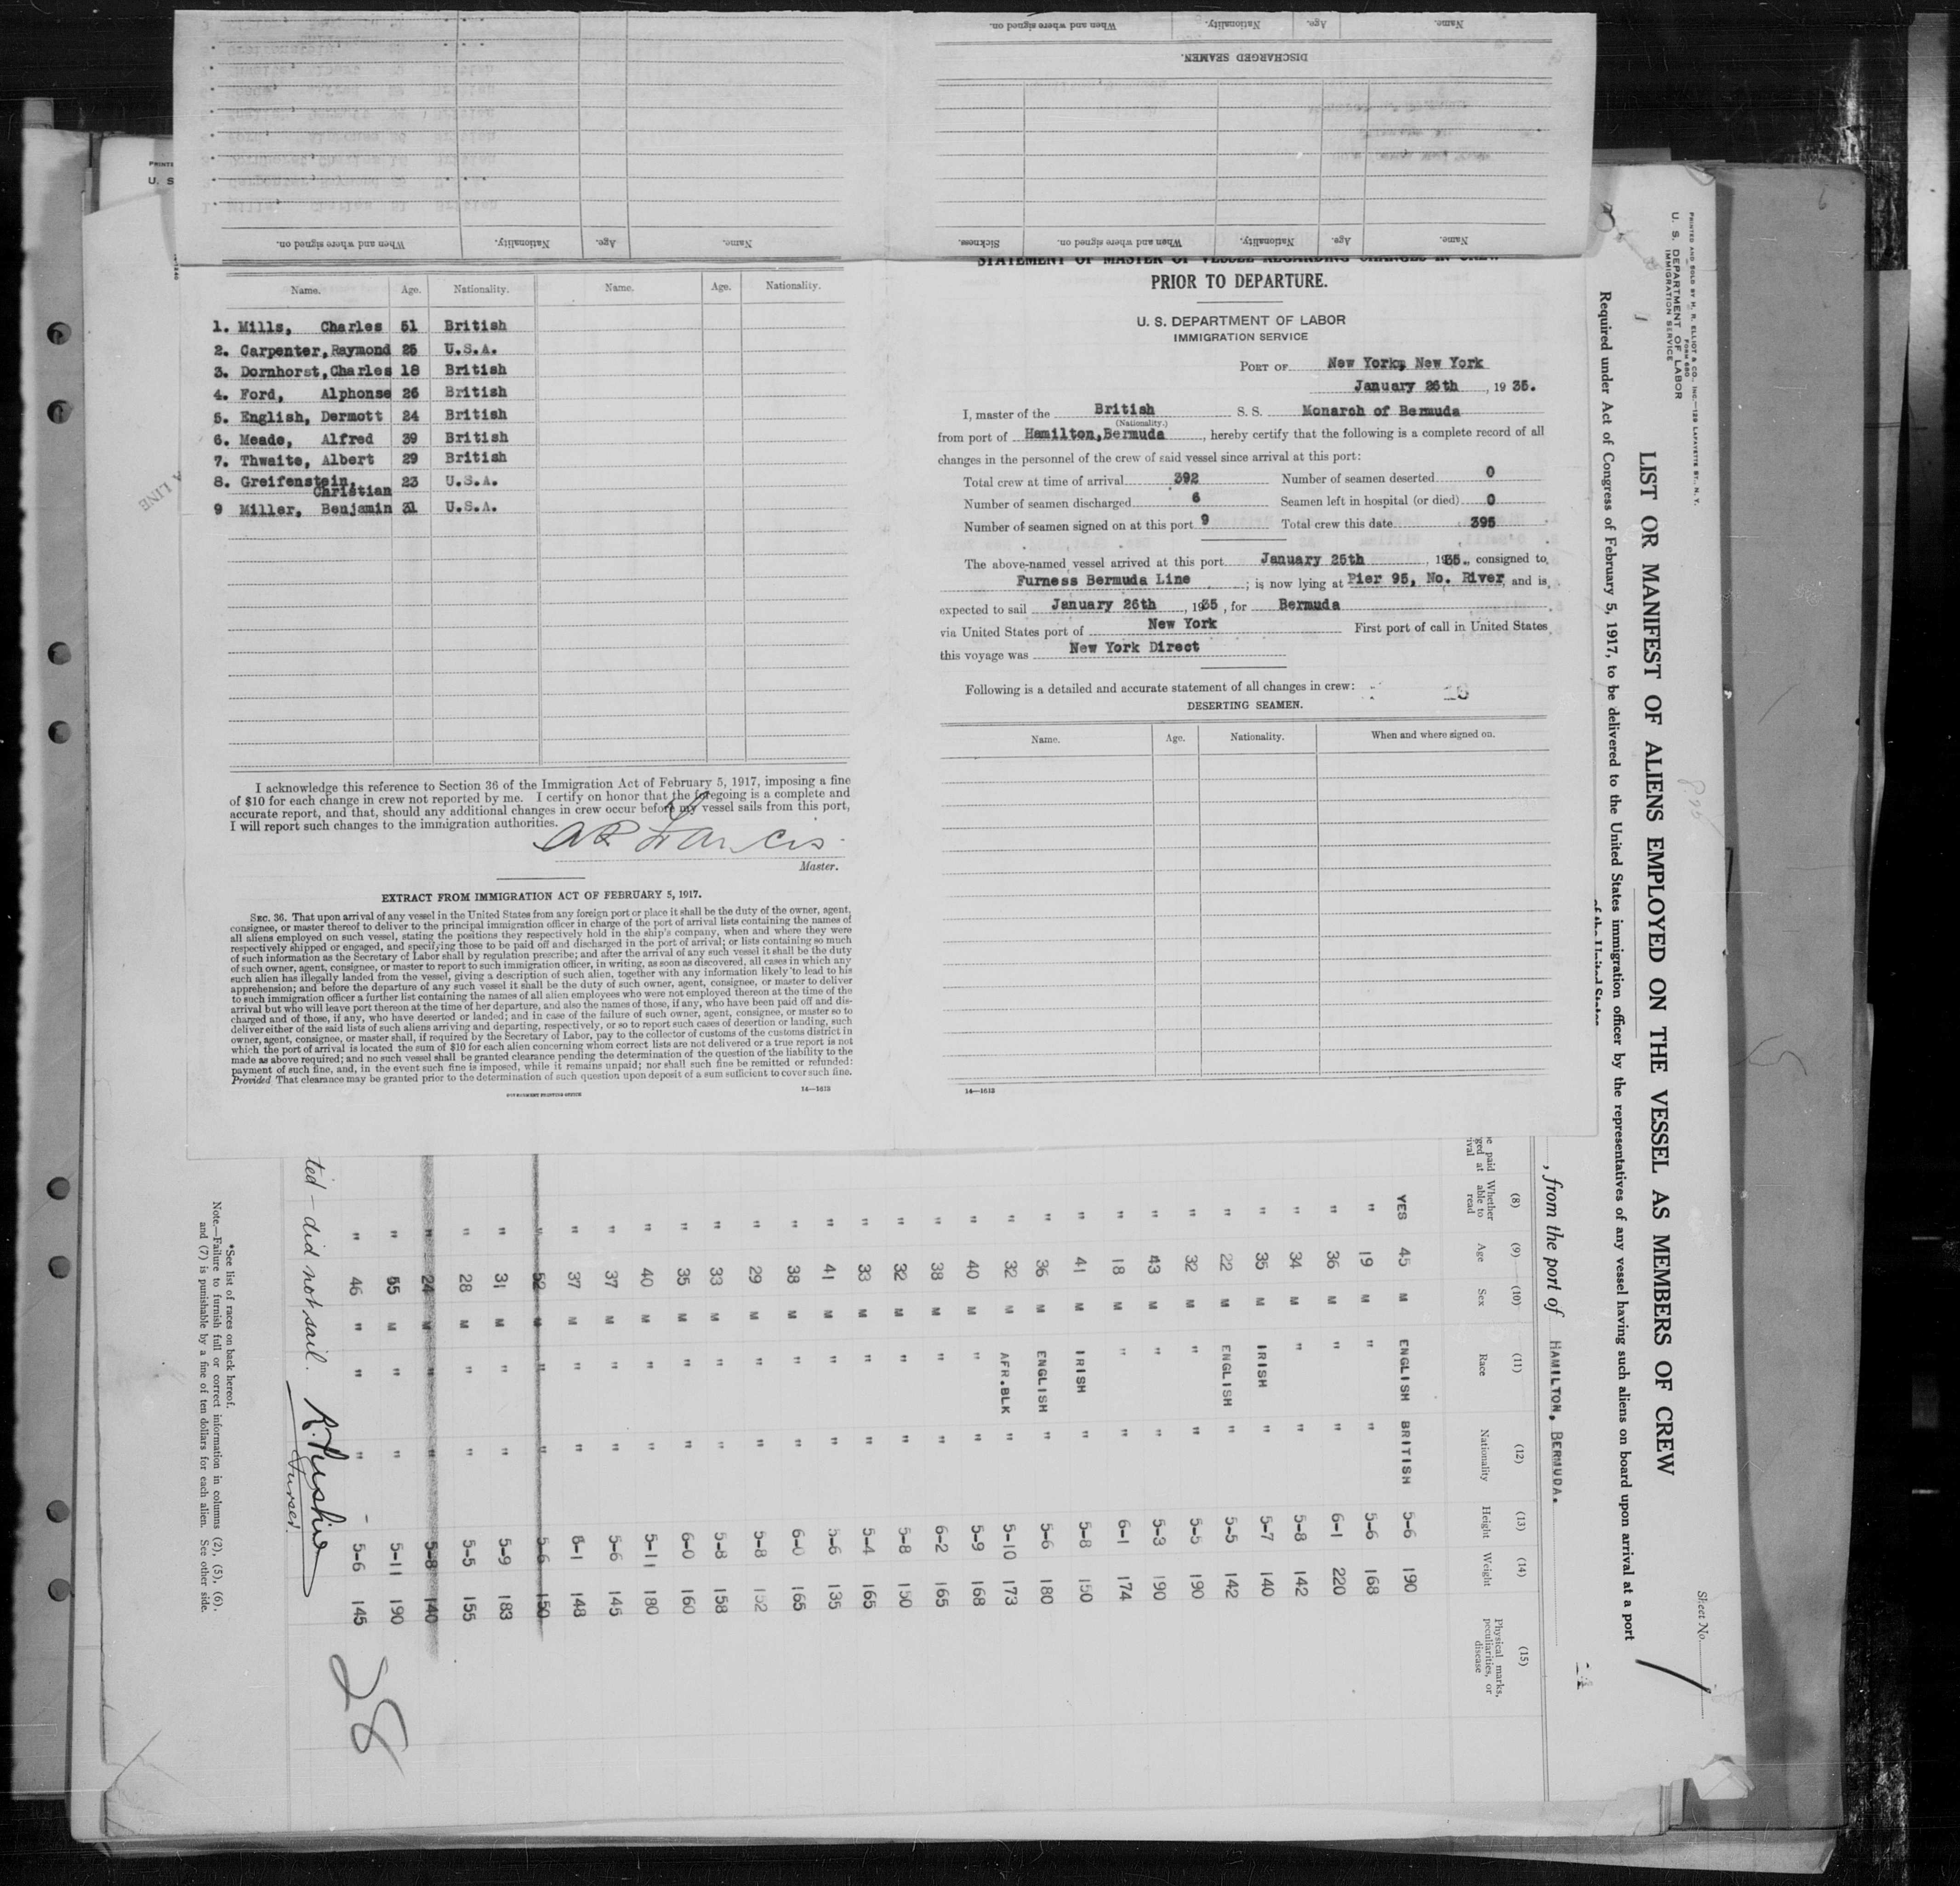 Name. Age. Nationality. Name. Age. Nationality.
1. Mills, Charles 51 British
2. Carpenter, Raymond 25 U.S.A.
3. Dornhorst, Charles 18 British
4. Ford, Alphonse 26 British
5. English, Dermott 24 British
6. Meade, Alfred 39 British
7. Thwaite, Albert 29 British
8. Greifenstein, Christian 23 U.S.A.
9 Miller, Benjamin 31 U.S.A.
I acknowledge this reference to Section 36 of the Immigration Act of February 5, 1917, imposing a fine
of $10 for each change in crew not reported by me. I certify on honor that the foregoing is a complete and
accurate report, and that, should any additional changes in crew occur before my vessel sails from this port,
I will report such changes to the immigration authorities.
Master.
EXTRACT FROM IMMIGRATION ACT OF FEBRUARY 5, 1917.
SEC. 36. That upon arrival of any vessel in the United States from any foreign port or place it shall be the duty of the owner, agent,
consignee, or master thereof to deliver to the principal immigration officer in charge of the port of arrival lists containing the names of
all aliens employed on such vessel, stating the positions they respectively hold in the ship's company, when and where they were
respectively shipped or engaged, and specifying those to be paid off and discharged in the port of arrival; or lists containing so much
of such information as the Secretary of Labor shall by regulation prescribe; and after the arrival of any such vessel it shall be the duty
of such owner, agent, consignee, or master to report to such immigration officer, in writing, as soon as discovered, all cases in which any
such alien has illegally landed from the vessel, giving a description of such alien, together with any information likely to lead to his
apprehension; and before the departure of any such vessel it shall be the duty of such owner, agent, consignee, or master to deliver
to such immigration officer a further list containing the names of all alien employees who were not employed thereon at the time of the
arrival but who will leave port thereon at the time of her departure, and also the names of those, if any, who have been paid off and dis-
charged and of those, if any, who have deserted or landed; and in case of the failure of such owner, agent, consignee, or master so to
deliver either of the said lists of such aliens arriving and departing, respectively, or so to report such cases of desertion or landing, such
owner, agent, consignee, or master shall, if required by the Secretary of Labor, pay to the collector of customs of the customs district in
which the port of arrival is located the sum of $10 for each alien concerning whom correct lists are not delivered or a true report is not
made as above required; and no such vessel shall be granted clearance pending the determination of the question of the liability to the
payment of such fine, and, in the event such fine is imposed, while it remains unpaid; nor shall such fine be remitted or refunded:
Provided That clearance may be granted prior to the determination of such question upon deposit of a sum sufficient to cover such fine.
GOVERNMENT PRINTING OFFICE 14—1613
When and where signed on. Nationality. Age. Name.
DISCHARGED SEAMEN.
Sickness. When and where signed on. Nationality. Age. Name.
When and where signed on. Nationality. Age. Name.
STATEMENT OF MASTER OF VESSEL REGARDING CHANGES IN CREW
PRIOR TO DEPARTURE.
U. S. DEPARTMENT OF LABOR
IMMIGRATION SERVICE
PORT OF New York, New York
January 26th, 1935.
I, master of the British S. S. Monarch of Bermuda
(Nationality.)
from port of Hamilton, Bermuda, hereby certify that the following is a complete record of all
changes in the personnel of the crew of said vessel since arrival at this port:
Total crew at time of arrival 392 Number of seamen deserted 0
Number of seamen discharged 6 Seamen left in hospital (or died) 0
Number of seamen signed on at this port 9 Total crew this date 395
The above-named vessel arrived at this port January 25th, 1935., consigned to
Furness Bermuda Line; is now lying at Pier 95, No. River, and is
expected to sail January 26th, 1935, for Bermuda
via United States port of New York First port of call in United States
this voyage was New York Direct
Following is a detailed and accurate statement of all changes in crew:
DESERTING SEAMEN.
Name. Age. Nationality. When and where signed on.
14—1613
PRINTED AND SOLD BY H. R. ELLIOT & CO., INC.—129 LAFAYETTE ST., N. Y.
FORM 680
U. S. DEPARTMENT OF LABOR
IMMIGRATION SERVICE
Sheet No.
LIST OR MANIFEST OF ALIENS EMPLOYED ON THE VESSEL AS MEMBERS OF CREW
Required under Act of Congress of February 5, 1917, to be delivered to the United States immigration officer by the representatives of any vessel having such aliens on board upon arrival at a port
of the United States
, from the port of HAMILTON, BERMUDA.
(8) (9) (10) (11) (12) (13) (14) (15)
Whether able to read Age Sex Race Nationality Height Weight Physical marks, peculiarities, or disease
YES 45 M ENGLISH BRITISH 5-6 190
" 19 M " " 5-6 168
" 36 M " " 6-1 220
" 34 M " " 5-8 142
" 35 M IRISH " 5-7 140
" 22 M ENGLISH " 5-5 142
" 32 M " " 5-5 190
" 43 M " " 5-3 190
" 18 M " " 6-1 174
" 41 M IRISH " 5-8 150
" 36 M ENGLISH " 5-6 180
" 32 M AFR.BLK " 5-10 173
" 40 M " " 5-9 168
" 38 M " " 6-2 165
" 32 M " " 5-8 150
" 33 M " " 5-4 165
" 41 M " " 5-6 135
" 38 M " " 6-0 165
" 29 M " " 5-8 152
" 33 M " " 5-8 158
" 35 M " " 6-0 160
" 40 M " " 5-11 180
" 37 M " " 5-6 145
" 37 M " " 6-1 148
" 52 M " " 5-6 150
" 31 M " " 5-9 183
" 28 M " " 5-5 155
" 24 M " " 5-8 140
" 55 M " " 5-11 190
" 46 " " " 5-6 145
ted - did not sail.
Purser.
28
*See list of races on back hereof.
Note.—Failure to furnish full or correct information in columns (2), (5), (6),
and (7) is punishable by a fine of ten dollars for each alien. See other side.